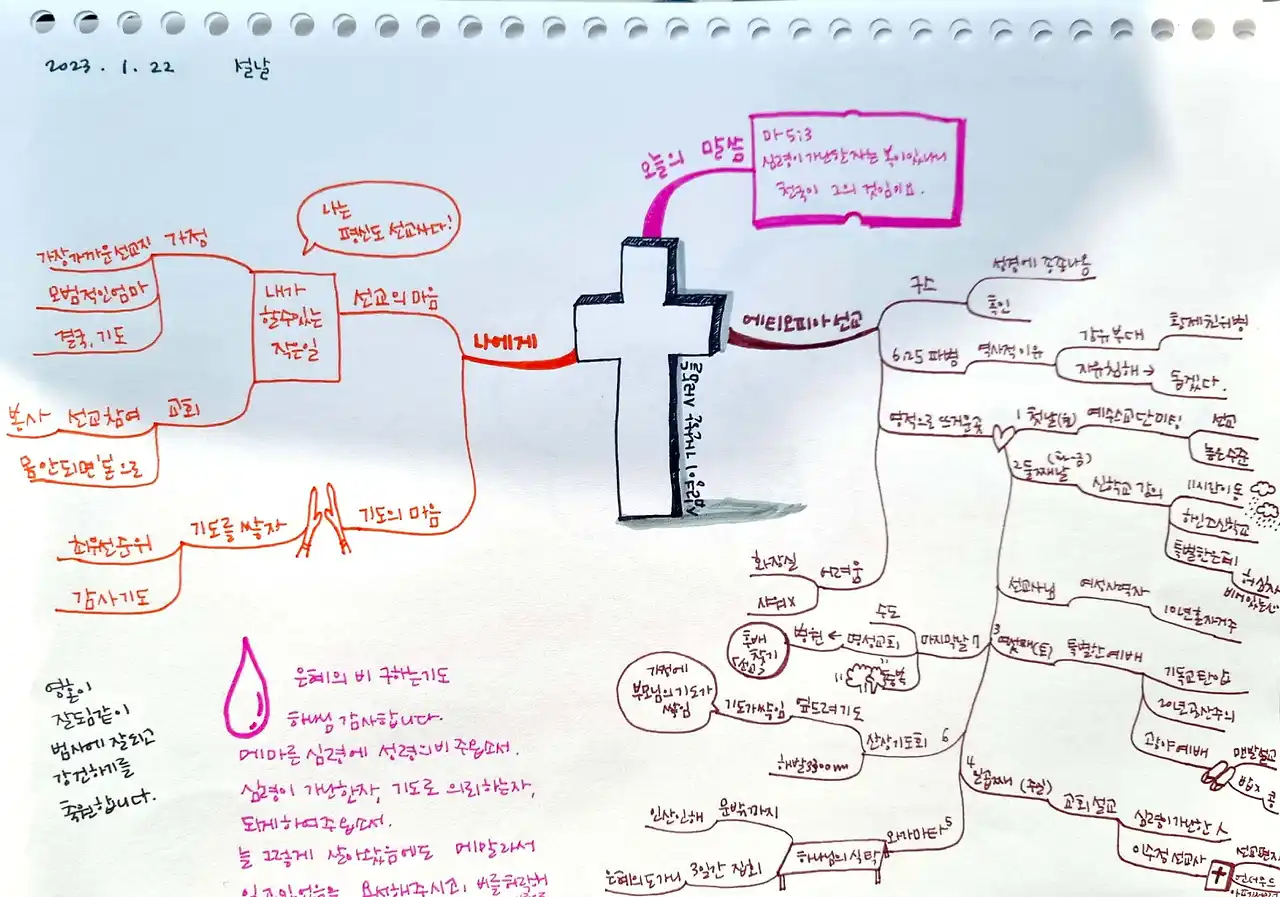 2023. 1. 22 설날
오늘의 말씀
마 5:3
심령이 가난한 자는 복이 있나니
천국이 그의 것임이요.
나는
평신도 선교사다!
나에게
선교의 마음
내가
할수있는
작은일
가정
가장가까운선교지
모범적인엄마
결국, 기도
교회
선교참여
봉사
몸안되면'돈'으로
기도의 마음
기도를 쌓자
최우선순위
감사기도
에티오피아 선교
구스
성경에 종종나옴
흑인
6.25 파병
역사적이유
강뉴부대
황제친위병
자유침해 →
돕겠다.
영적으로 뜨거운곳
1 첫날(월)
예수스교단미팅
선교
높은수준
2 둘째날
(화-금)
신학교 강의
11시간이동
하인즈신학교
특별한은혜
선교사님
여성사역자
10년혼자거주
3 여섯째(토)
특별한예배
기독교탄압
20년공산주의
광야예배
맨발설교
밥x
콩
4 일곱째 (주일)
교회설교
심령이가난한人
이수정선교사
선교편지
언더우드
5 와가마타
하나님의식탁
문밖까지
인산인해
3일간 집회
은혜의도가니
6 산상기도회
엎드려기도
기도가쌓임
가정에
부모님의기도가
쌓임
해발3300m
마지막날 7
수도
명성교회
병원 ←
후배
찾기
선교
어려움
화장실
샤워X
영혼이
잘됨같이
범사에 잘되고
강건하기를
축원합니다.
은혜의 비 구하는기도
하나님 감사합니다.
메마른 심령에 성령의비 주옵소서.
심령이 가난한자, 기도로 의뢰하는자,
되게하여주옵소서.
늘 그렇게 살아왔음에도 메말라서
있고있었음을 용서해주시고,